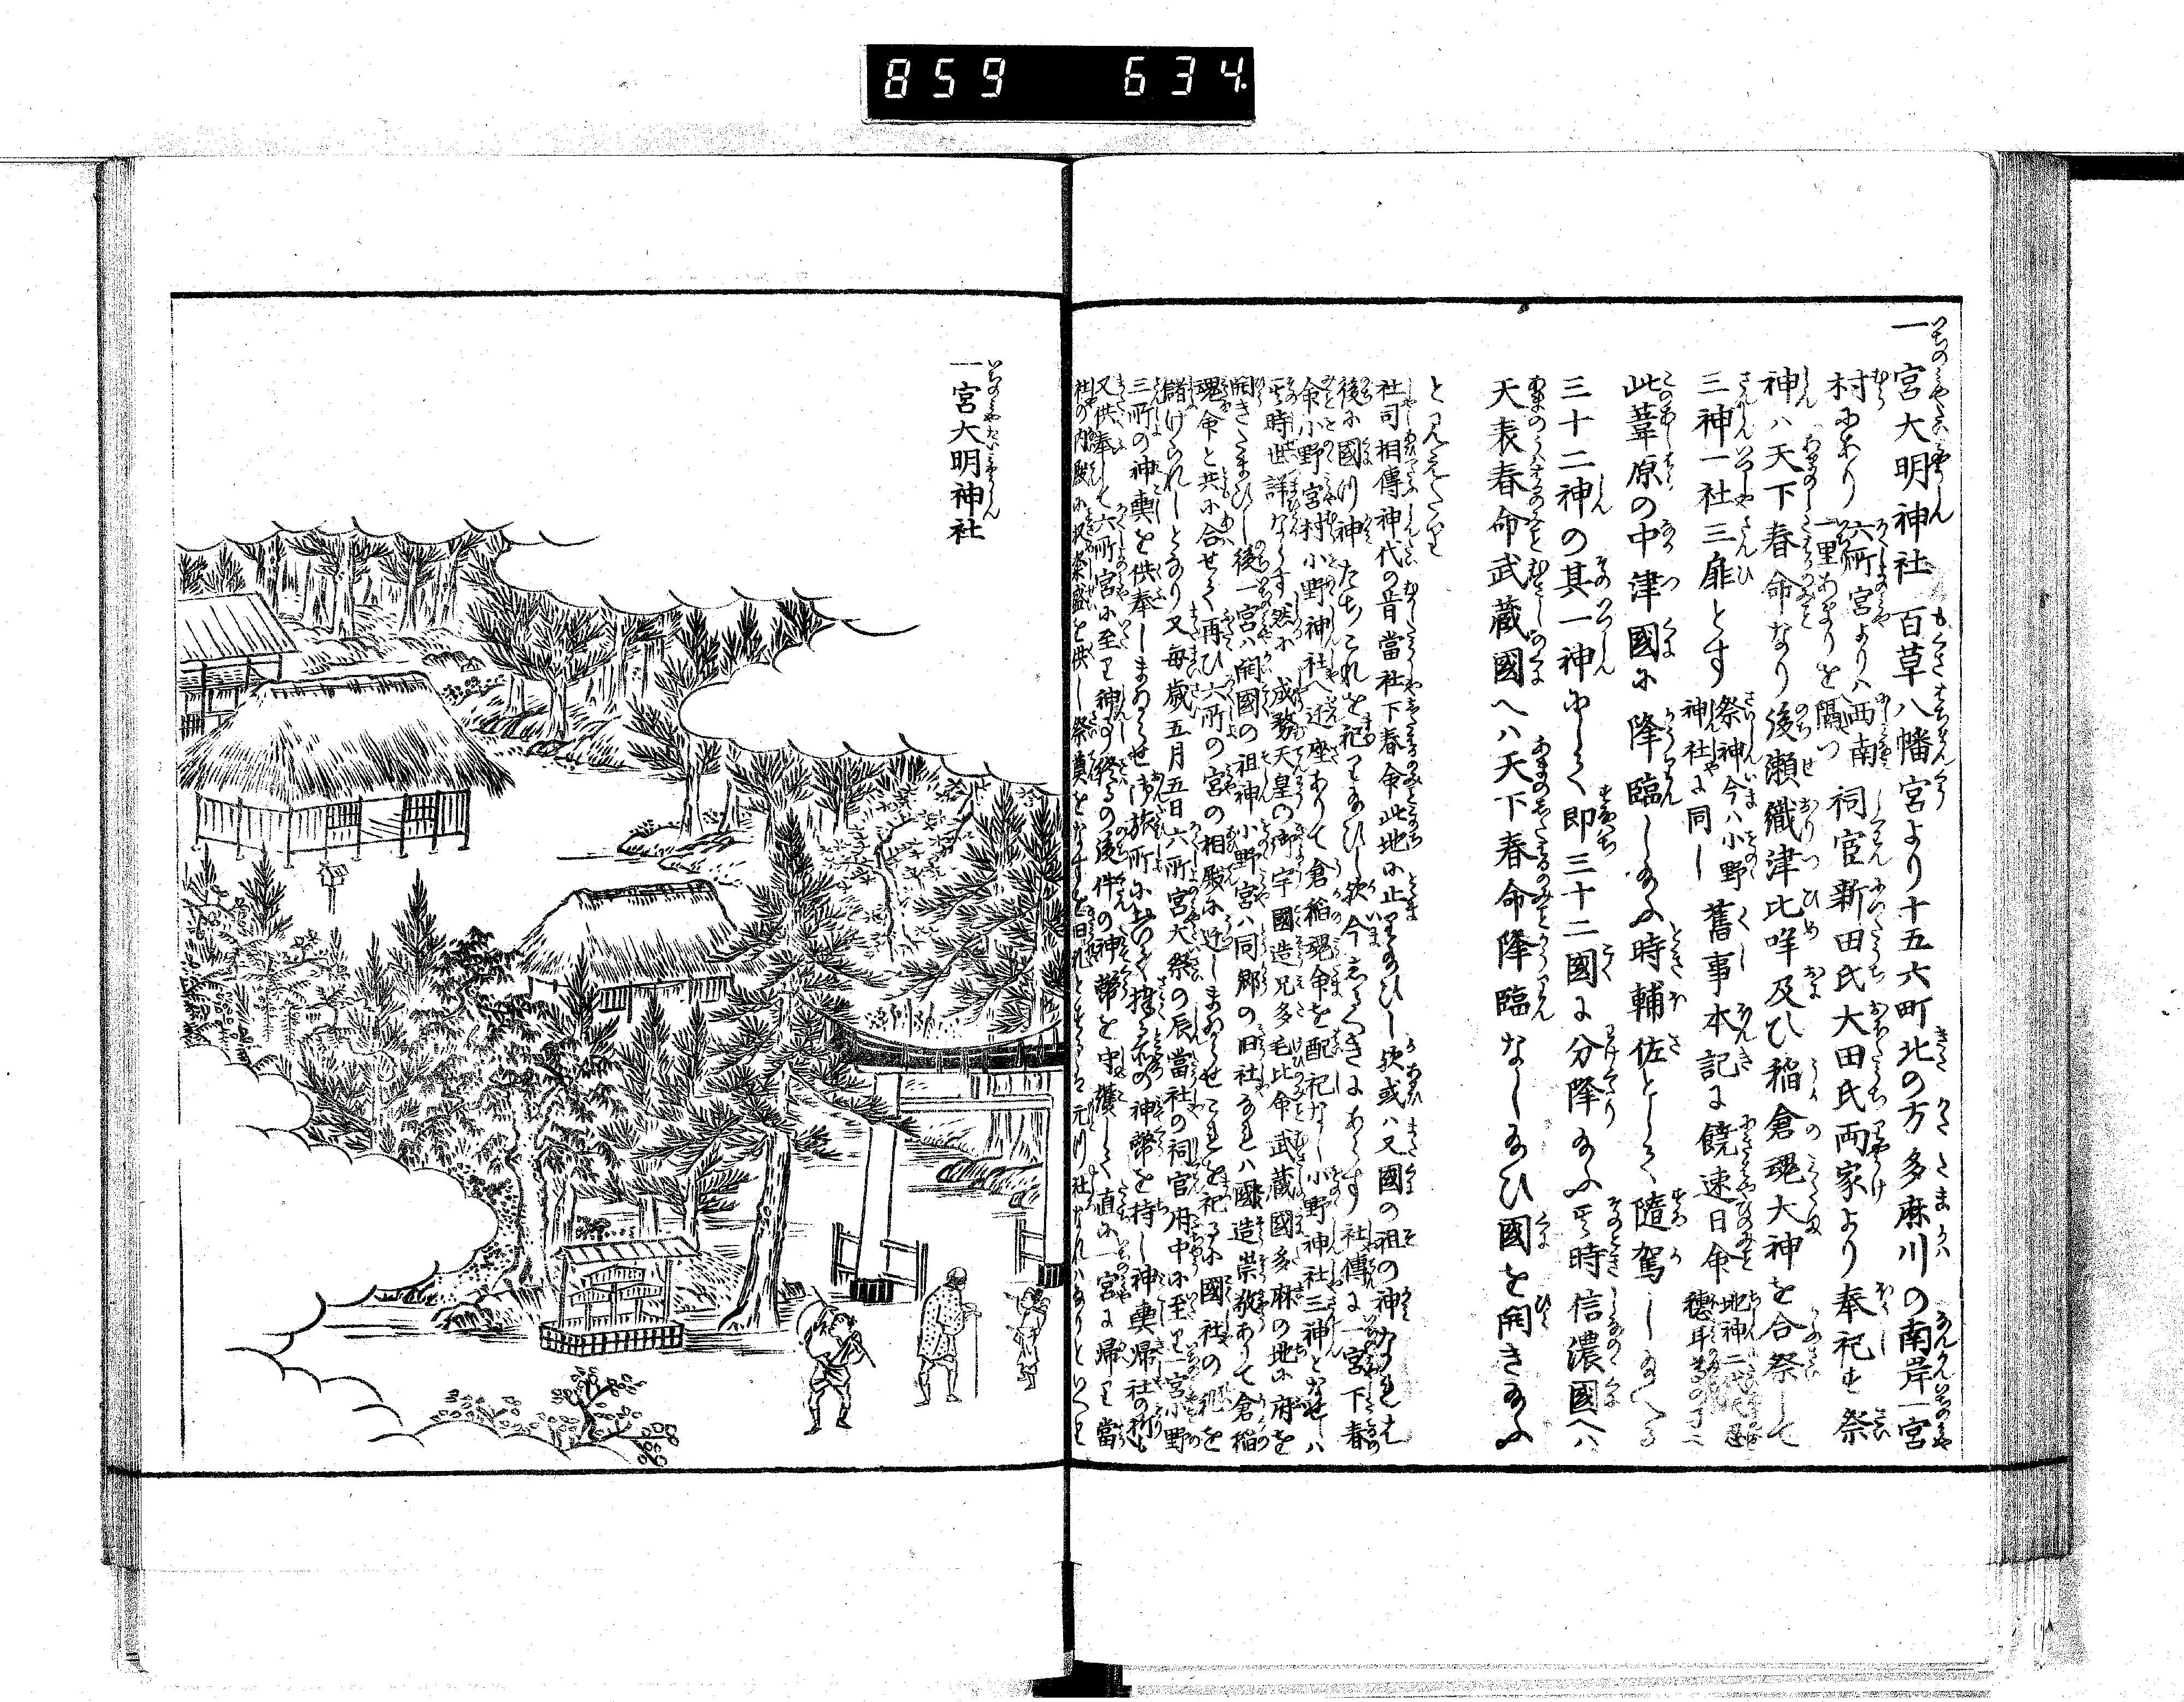 859 634.
一宮大明神社 百草八幡宮より十五六町北の方多麻川の南岸一宮
村にあり 六所宮よりハ西南一里あまりを隔つ 祠官新田氏大田氏両家より奉祀す祭
神ハ天下春命なり後瀬織津比咩及ひ稲倉魂大神を合祭して
三神一社三扉とす 祭神今ハ小野神社に同し 舊事本記に饒速日命
此葦原の中津國に降臨し給ふ時輔佐として隨駕し給へる
三十二神の其一神にして即三十二國に分降給ふ其時信濃國へハ
天表春命武蔵國へハ天下春命降臨なし給ひ國を開き給ふ
とみえたり
社司相傳神代の昔當社下春命此地に止り給ひし欤或ハ又國の祖の神なれは
後に國川神たちこれを祀り給ひし欤今志るへきにあらす社傳に一宮下春
命小野宮村小野神社へ迁座ありて倉稲魂命を配祀なし小野神社三神となせしハ
其時世詳ならす然に成務天皇の御宇國造兄多毛比命武蔵國多麻の地に府を
開きたまひし後一宮ハ開國の祖神小野宮ハ同郷の旧社なれハ國造崇敬ありて倉稲
魂命と共に合せて再ひ六所の宮の相殿に迁しまゐらせこれを祀る小國社の礼を
儲けられしとなり又毎歳五月五日六所宮大祭の辰當社の祠官府中に至り一宮小野
三所の神輿を供奉しまゐらせ御旅所に於て捧る所の神幣を持し神輿帰社の折も
又供奉して六所宮に至り神事終るの後件の神幣を守護して直に一宮に帰り當
社の内殿に
一宮大明神社
いちのみやだいみやうじん